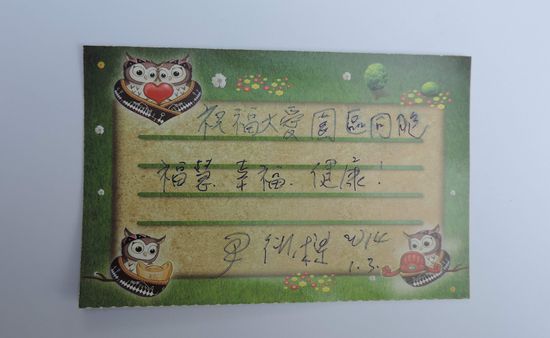 祝福大愛園區同胞
福慧.幸福.健康!
尹衍樑 2014
1.3.